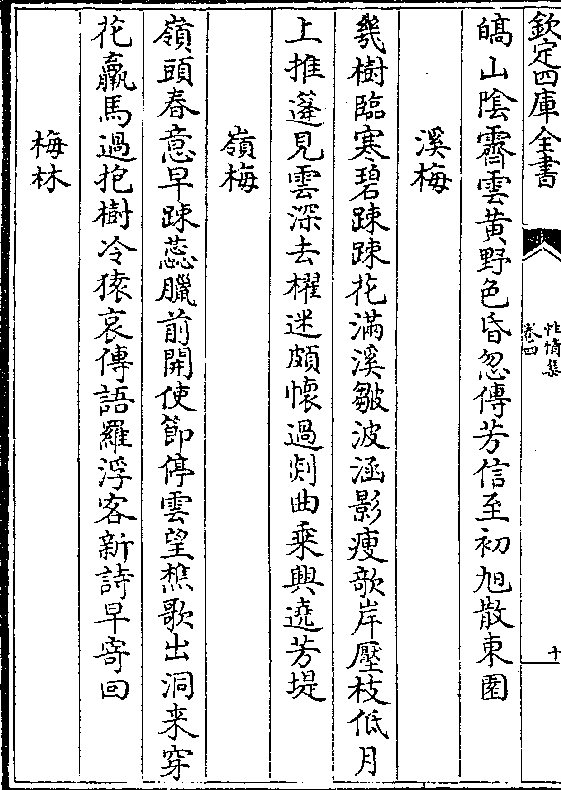 欽定四庫全書
性情集
卷四
十
皜山陰霽雲黄野色昏忽傳芳信至初旭散東園
溪梅
幾樹臨寒碧踈踈花滿溪皺波涵影瘦欹岸壓枝低月
上推蓬見雲深去櫂迷頗懷過剡曲乗興遶芳堤
嶺梅
嶺頭春意早踈蕊臘前開使節停雲望樵歌出洞来穿
花羸馬過抱樹冷猿哀傳語羅浮客新詩早寄回
梅林